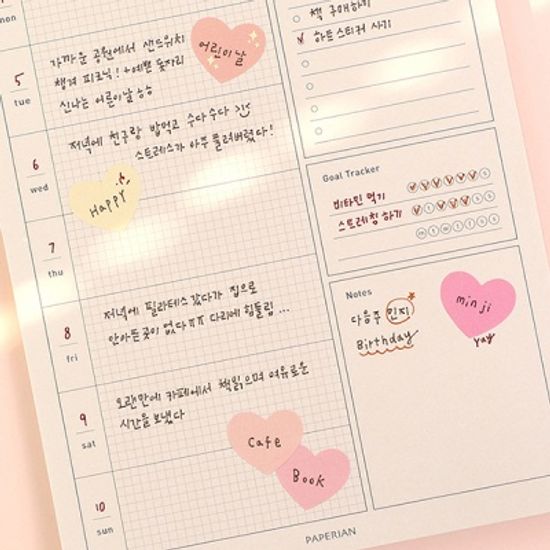 mon
5
tue
가까운 공원에서 샌드위치
챙겨 피크닉! +예쁜 돗자리
신나는 어린이날 ㅎㅎ
어린이날
6
wed
저녁에 친구랑 밥먹고 수다수다
스트레스가 아주 풀려버렸다!
Happy
7
thu
8
fri
저녁에 필라테스 갔다가 집으로
안아픈곳이 없다ㅠㅠ 다리에 힘풀림...
9
sat
오랜만에 카페에서 책읽으며 여유로운
시간을 보냈다
Cafe
Book
10
sun
책 구매하기
하트스티커 사기
Goal Tracker
비타민 먹기
스트레칭 하기
m t w t f s s
Notes
다음주 민지
Birthday
minji
yay
PAPERIAN